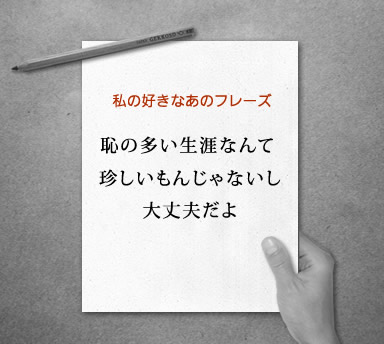 私の好きなあのフレーズ
恥の多い生涯なんて
珍しいもんじゃないし
大丈夫だよ